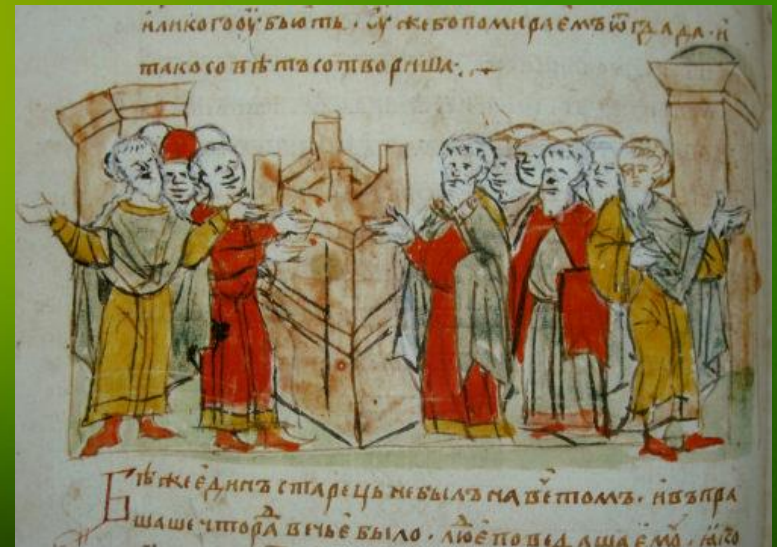 или кого оубьють . оуже бо помираемъ ѿ глада . и
тако совѣтъ сотвориша .
Бѣ же единъ старець не былъ на ве томъ . и въпра
шаше что раⷣ вечье было . люⷣе поведаша емꙋ .